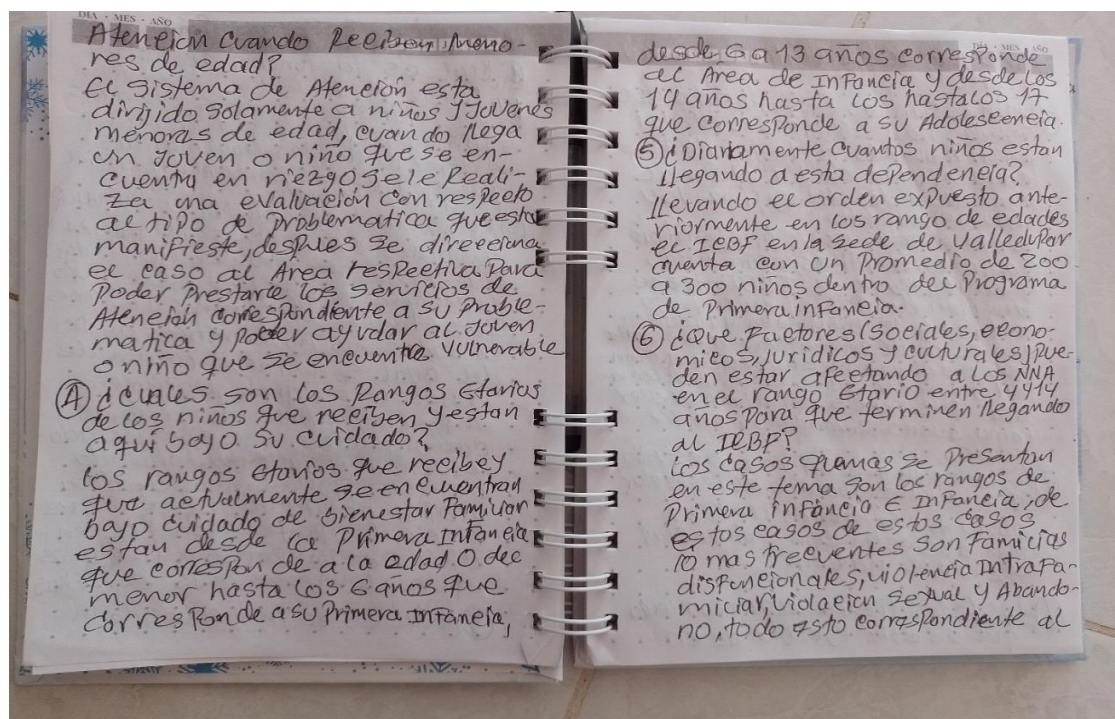 DIA · MES · AÑO
Atención cuando Reciben Meno-
res de edad?
El Sistema de Atención esta
dirijido Solamente a niños y Jovenes
menores de edad, cuando llega
un Joven o niño que se en-
cuentra en riezgo se le Reali-
za una evaluación con respecto
al tipo de problematica que esta
manifieste, después se direcciona
el caso al Area respectiva Para
Poder Prestarle los servicios de
Atención correspondiente a su Proble-
matica y poder ayudar al Joven
o niño que se encuentra vulnerable
④ ¿cuales son los Rangos Etarios
de los niños que reciben y estan
aquí bajo su cuidado?
los rangos etarios que recibe y
que actualmente se encuentran
bajo cuidado de bienestar Familiar
estan desde la Primera Infancia
que corresponde a la edad 0 del
menor hasta los 6 años que
corresponde a su Primera Infancia,
MES AÑO
desde 6 a 13 años corresponde
al Área de Infancia y desde los
14 años hasta los hasta los 17
que corresponde a su Adolescencia.
⑤ ¿Diariamente cuantos niños estan
llegando a esta dependencia?
llevando el orden expuesto ante-
riormente en los rango de edades
el ICBF en la sede de Valledupar
cuenta con un Promedio de 200
a 300 niños dentro del Programa
de Primera infancia.
⑥ ¿Que Factores (Sociales, econo-
micos, Juridicos y culturales) pue-
den estar afectando a los NNA
en el rango Etario entre 4 y 14
años para que terminen llegando
al ICBF?
los casos que mas se Presentan
en este tema son los rangos de
Primera infancia E Infancia, de
estos casos de estos casos
lo mas frecuentes son Familias
disfuncionales, violencia Intrafa-
miliar, violacion sexual y Abando-
no, todo esto correspondiente al